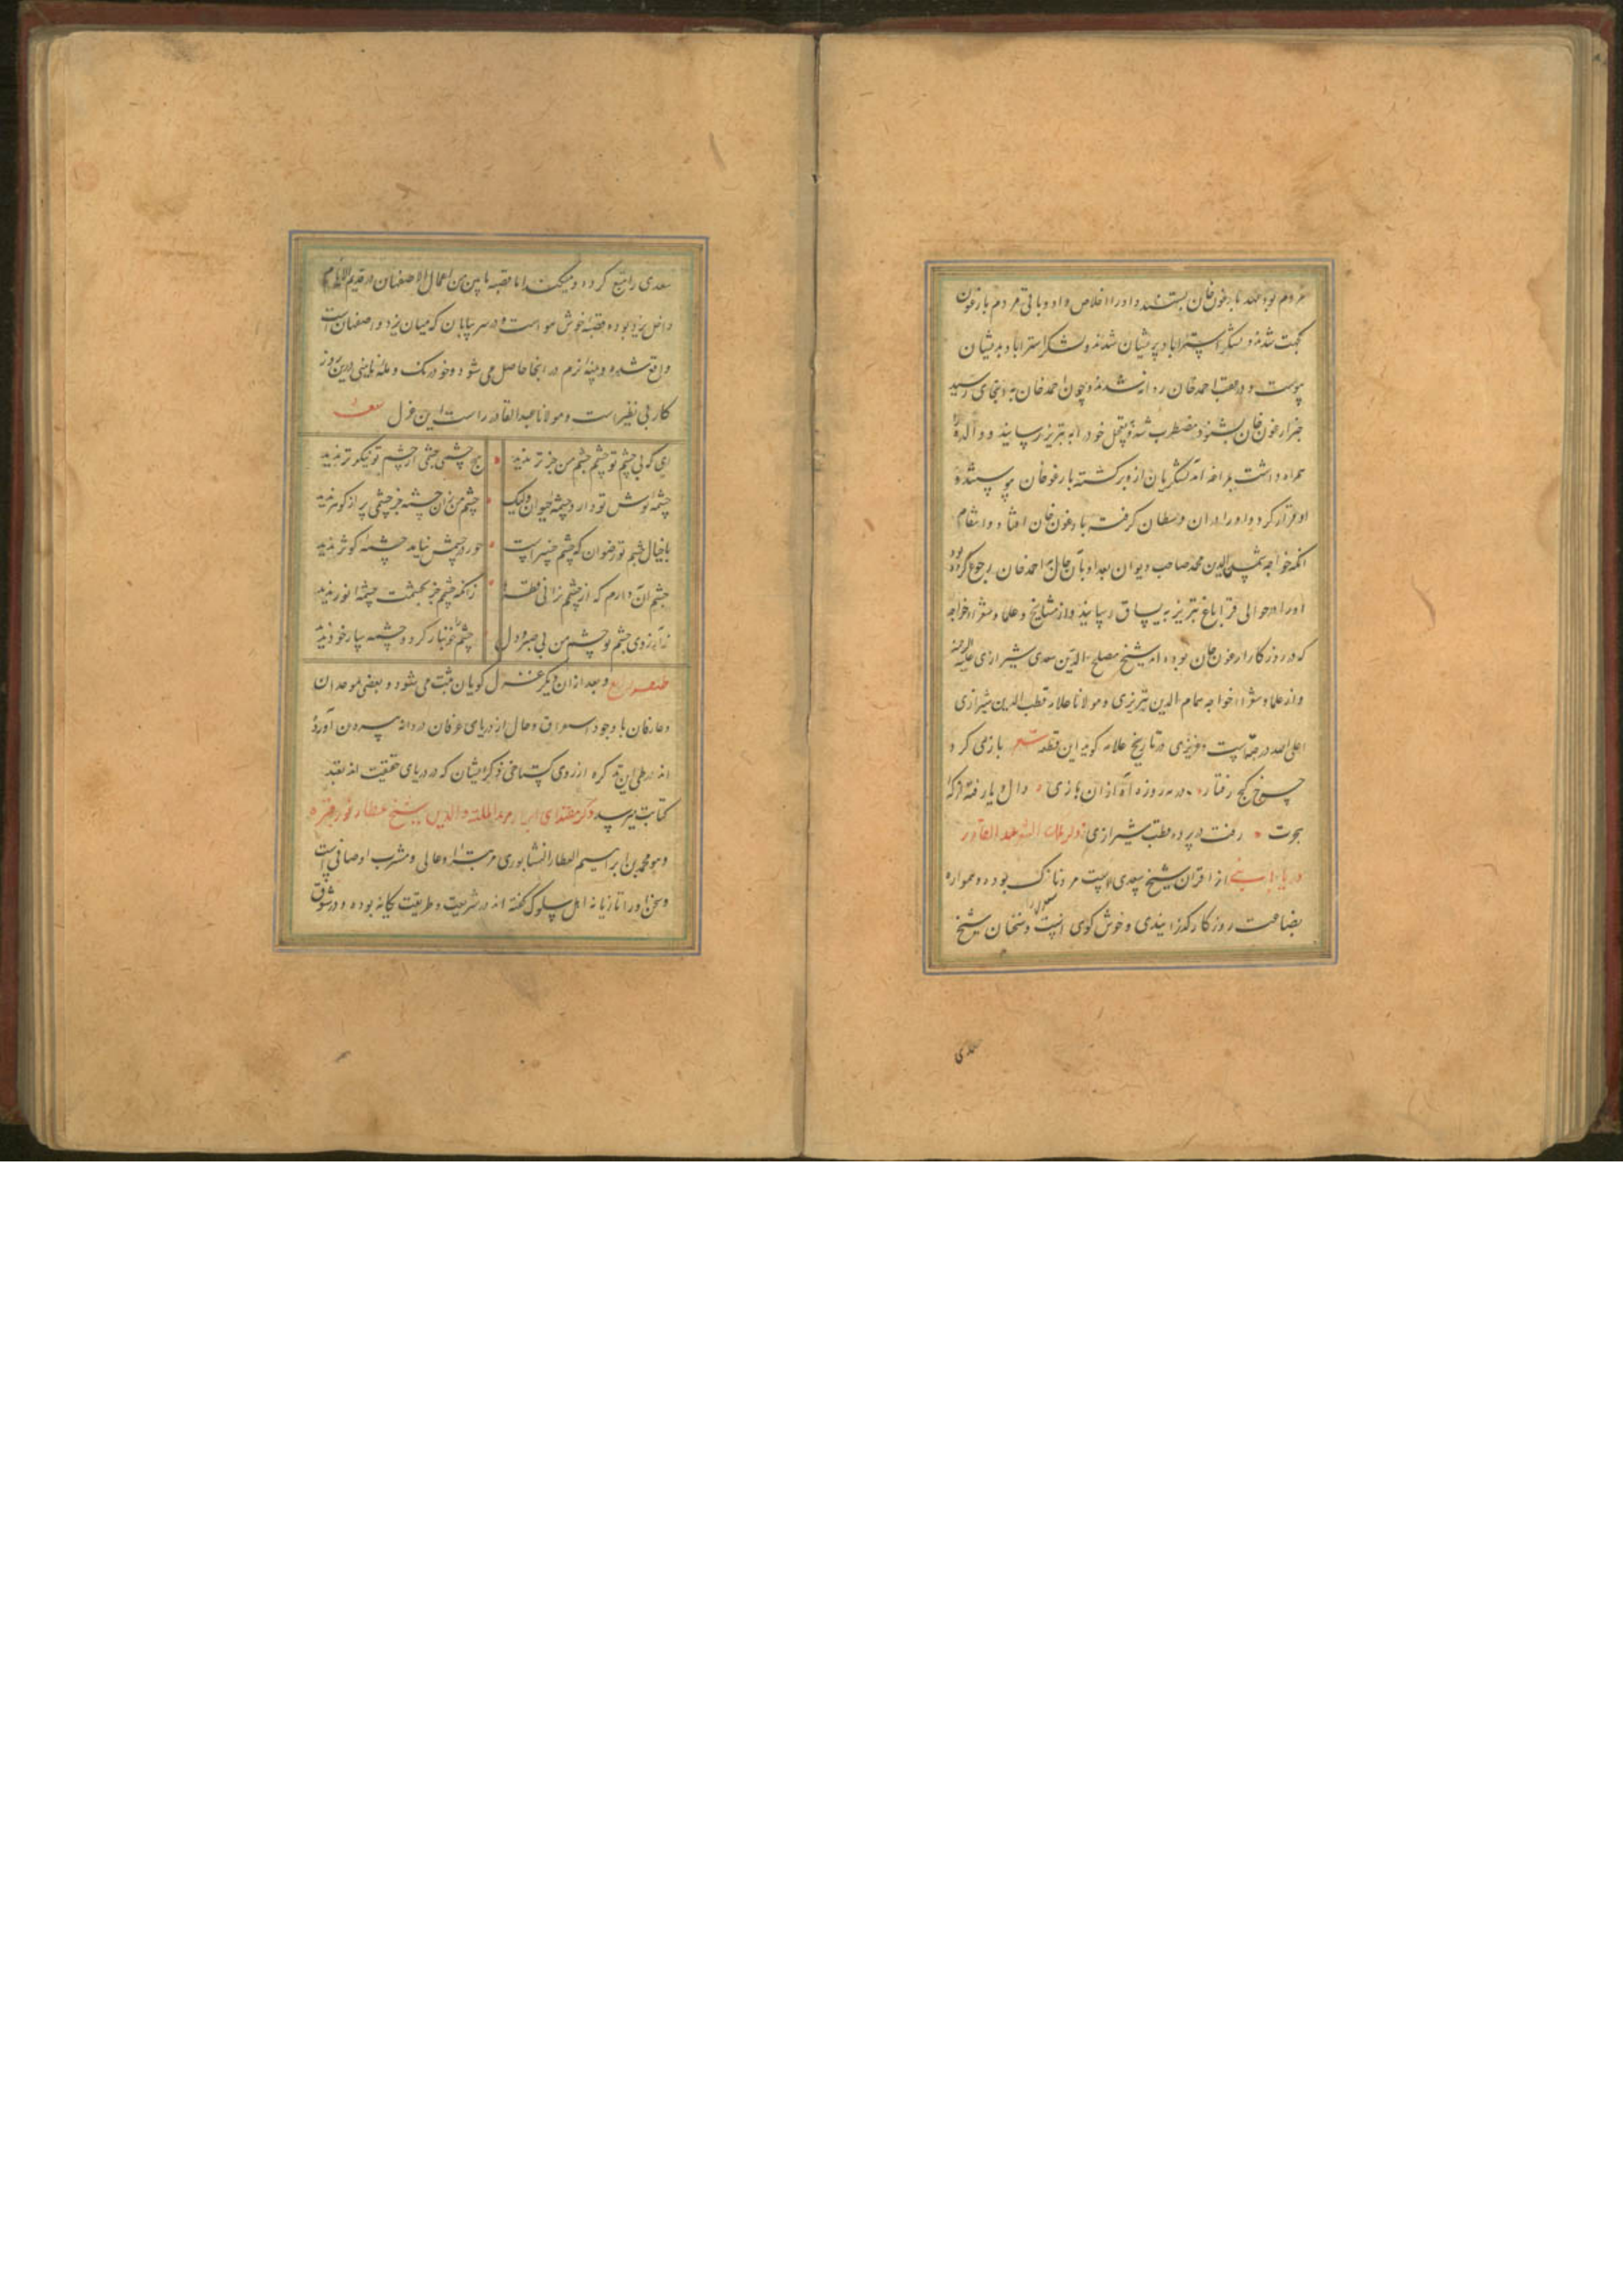 مردم بود عهد با ارغون خان بستند و او را خلاص داد و باقی مردم با ارغون
جهت شدند و لشکر استراباد پریشان شدند و لشکر استراباد بدیشان
پیوست و در عقب احمد خان روانه شدند و چون احمد خان به رسید
خبر ارغون خان بشنود مضطرب شد و بتعجیل خود را به تبریز رسانید و والده
همراه داشت بمراغه آمد لشکریان از و برگشته با ارغون خان پیوستند و
او فرار کرد و او را در ان گرفته با ارغون خان و انتقام
انکه خواجه شمس الدین محمد صاحب دیوان بعد از اباقا خان به احمد خان رجوع کرده بود
او را در حوالی قراباغ تبریز به یساق رسانید و از مشایخ و علما و شعرا و خواجه
که در روزگار ارغون خان بوده اند شیخ مصلح الدین سعدی شیرازی علیه الرحمه
و از علما و شعرا خواجه همام الدین تبریزی و مولانا علامه قطب الدین شیرازی
اعلی الله درجاتهما است و عزیزی در تاریخ علامه گوید این قطعه شعر بازی کرد
چرخ کج رفتار در مه روزه آه از ان بازی دال و یا رفته از گه
هجرت رفت در پرده قطب شیرازی ذکر ملک الشعرا عبد القادر
از اقران شیخ سعدی است مردی نازک بوده و همواره
بضاعت روزگار گذرانیدی و خوش گوی است و سخنان شیخ
سعدی
سعدی را تتبع کرده و میکند اما قصبه نایین من اعمال الاصفهان در قدیم الایام
داخل یزد بوده قصبه خوش هواست و در سر بیابان که میان یزد و اصفهان است
واقع شده و پنبه نرم در انجا حاصل می شود و خودرنک و مله نایینی درین روز
کار بی نظیر است و مولانا عبدالقادر راست این غزل شعر
ای که بی چشم تو چشم چشم من جز تر ندید هیچ چشمی چشمی از چشم تو نیکوتر ندید
چشمه نوش تو دارد چشمه حیوان ولیک چشم من زان چشمه جز چشمی پر از گوهر ندید
با خیال چشم تو رضوان که چشم جنت است حور در چشمش نیاید چشمه کوثر ندید
چشم ان دارم که از چشم نرانی زانکه چشم جز بچشمت چشمه انور ندید
ز آرزوی چشم تو چشم من بی صبر و دل چشمها خونبار کرد و چشمه
طبقه رابع و بعد از ان دیگر غزل گویان ثبت می شود و بعضی موحدان
و عارفان با وجود استغراق و حال از دریای عرفان دردانه بیرون آورده
اند در طی این تذکره از روی گستاخی ذکر ایشان که در دریای حقیقت اند بقید
کتابت میرسد ذکر مقتدای ابرار فرید الملة والدین شیخ عطار نور قبره
و هو محمد بن ابراهیم العطار النیشابوری مرتبه او عالی و مشرب او صافی است
و سخن او را تازیانه اهل سلوک گفته اند در شریعت و طریقت یگانه بوده و در شوق